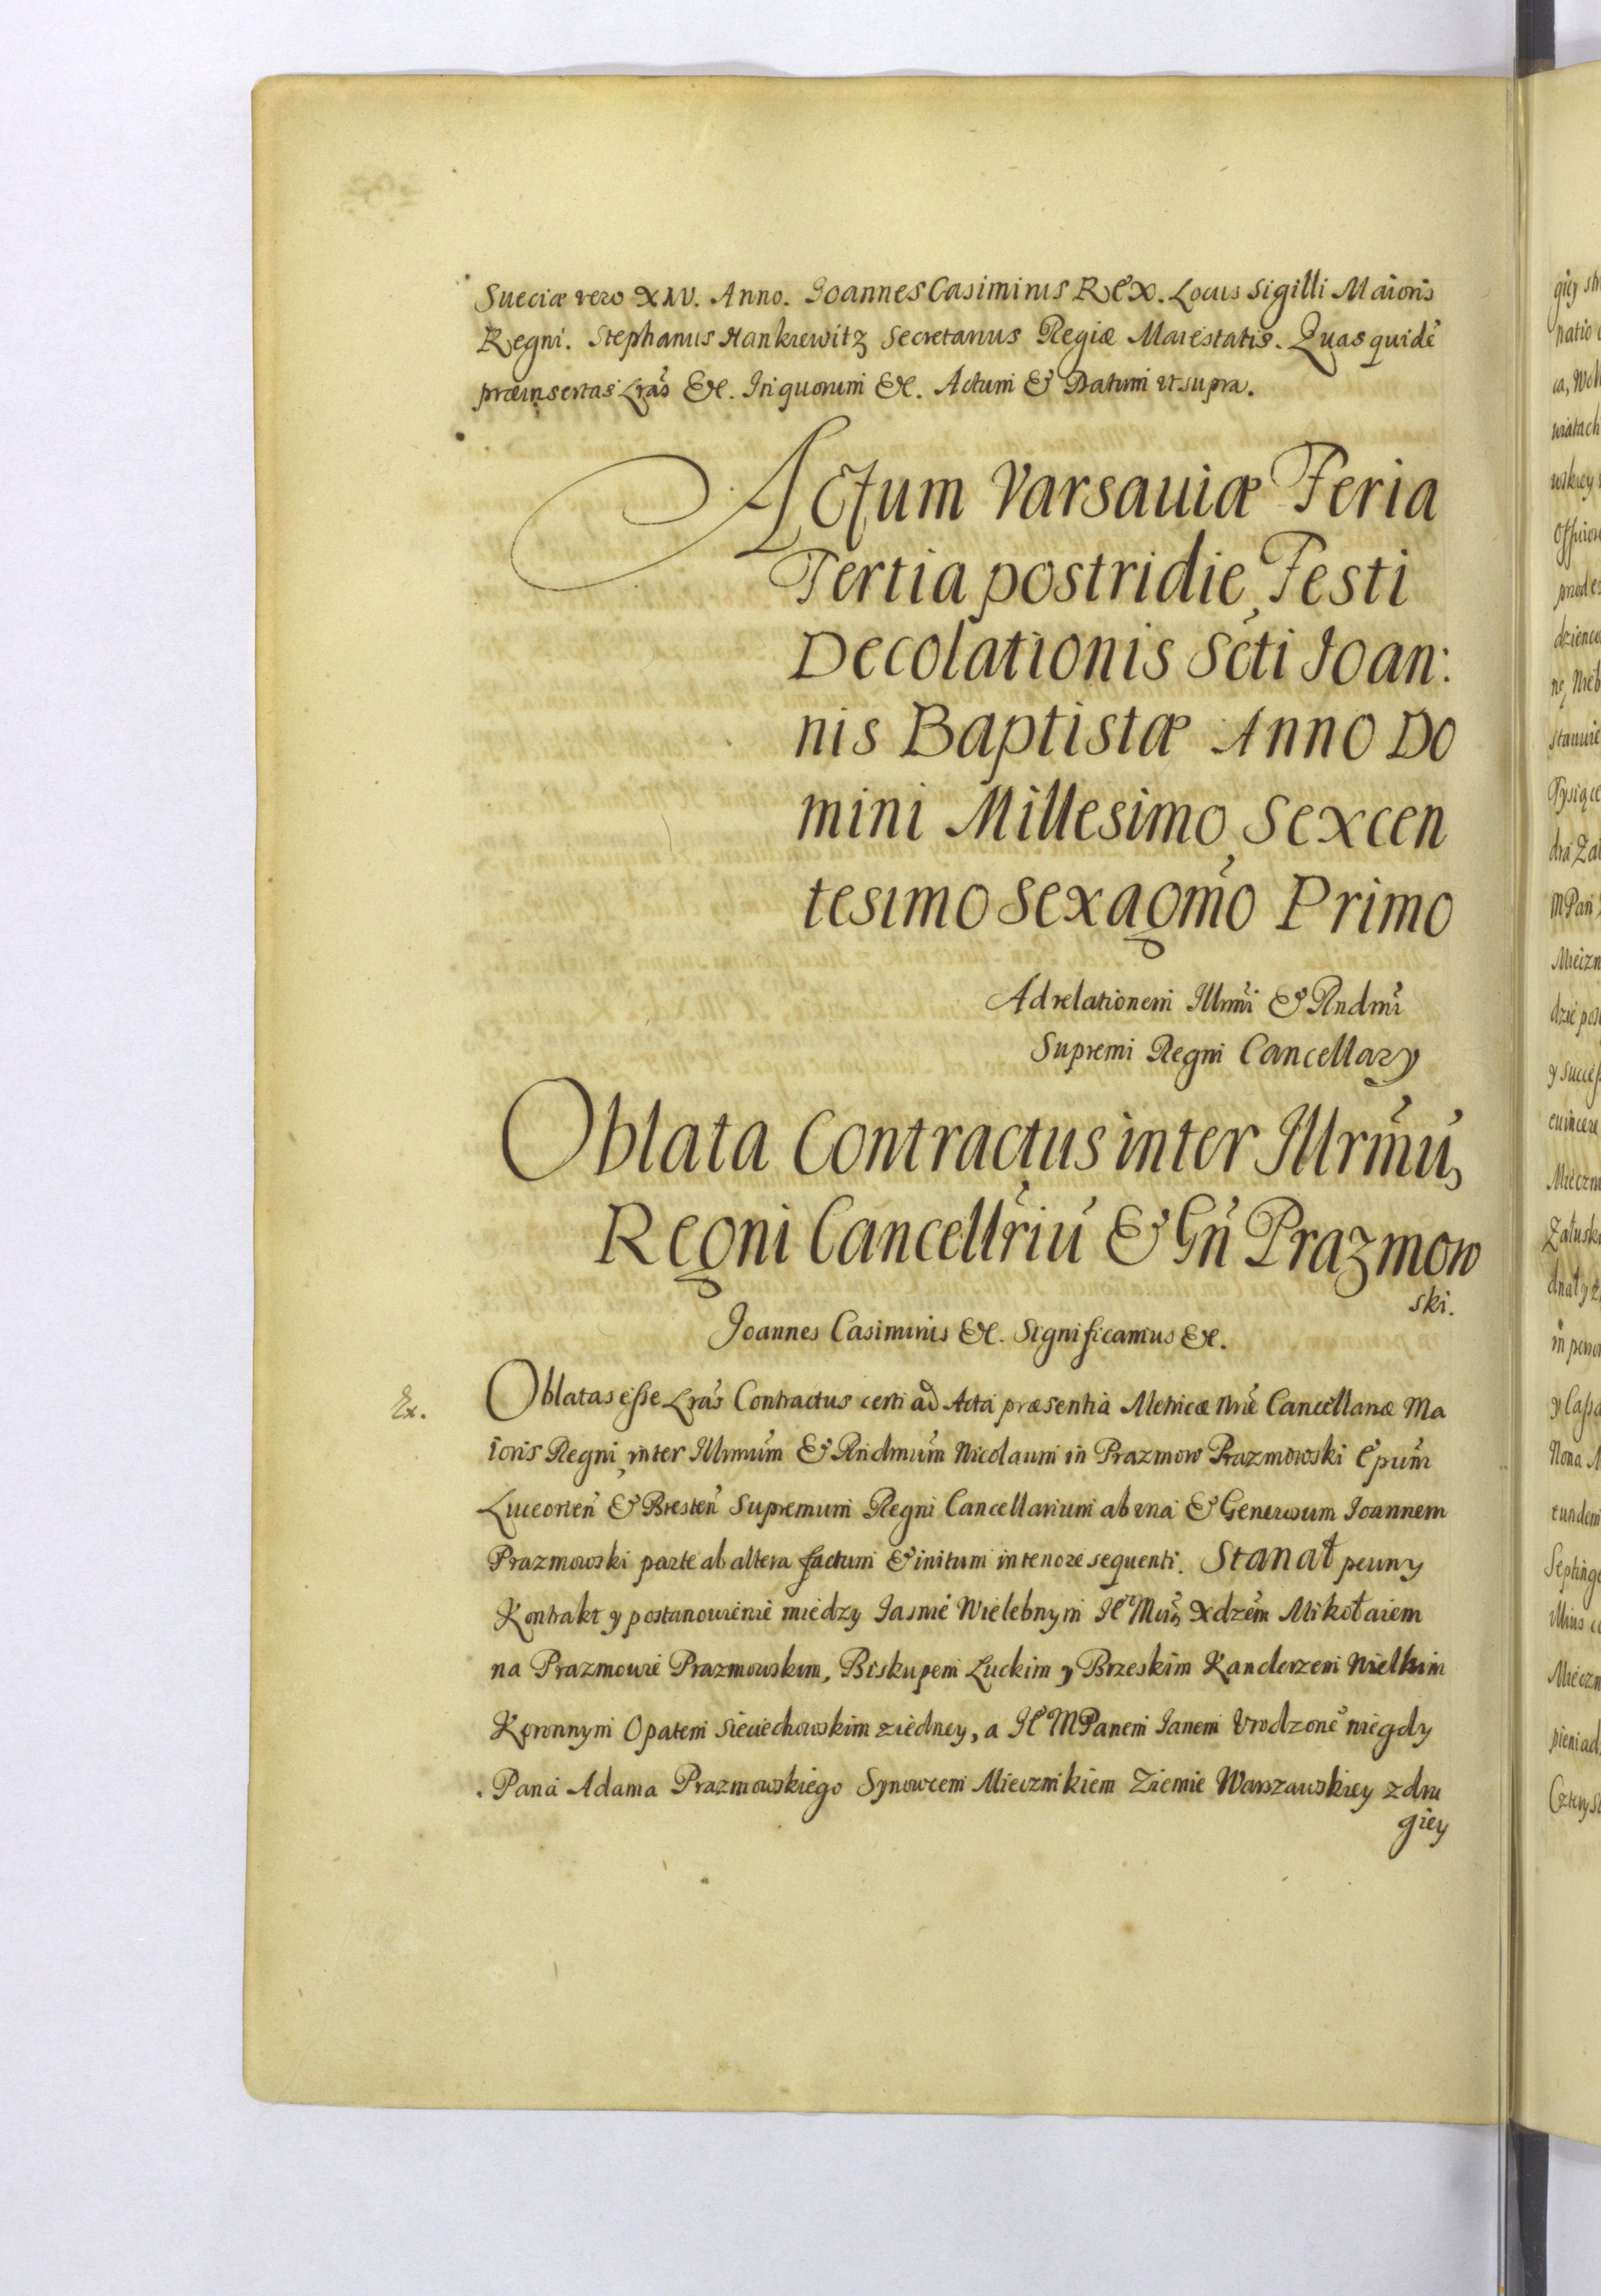 Sueciæ vero XIV. Anno. Ioannes Casimirus REX. Locus Sigilli Maioris
Regni. Stephanus Hankiewitz Secretarius Regiæ Maiestatis. Quas quidē
præinsertas Lrãs &c. In quorum &c. Actum & Datum ut supra.
Actum Varsauiæ Feria
Tertia postridie Festi
Decolationis Scti Ioan:
nis Baptistæ Anno Do
mini Millesimo Sexcen
tesimo Sexagmo Primo
Ad relationem Illmi & Rndmi
Supremi Regni Cancellary
Oblata Contractus inter Illrmũ
Regni Cancellriũ & Gñ Prazmow
ski.
Joannes Casimirus &c. Significamus &c.
Ex.
Oblatas esse Lrãs Contractus certi ad Acta præsentia Metricæ Nrãe Cancellariæ Ma
ioris Regni inter Illmum & Rndmum Nicolaum in Prazmow Prazmowski Epum
Luceorień & Bresteń Supremum Regni Cancellarium ab vna & Generosum Ioannem
Prazmowski parte ab altera factum & initum in tenore sequenti. Stanął pewny
Kontrakt y postanowienie miedzy Iasnie Wielebnym Ie Mũs Xdzem Mikołaiem
na Prazmowie Prazmowskim, Biskupem Luckim y Brzeskim Kanclerzem Wielkim
Koronnym Opatem Sieciechowskim ziedney, a Ie MPanem Ianem Vrodzone niegdy
Pana Adama Prazmowskiego Synowcem Miecznikiem Ziemie Warszawskiey z dru
giey